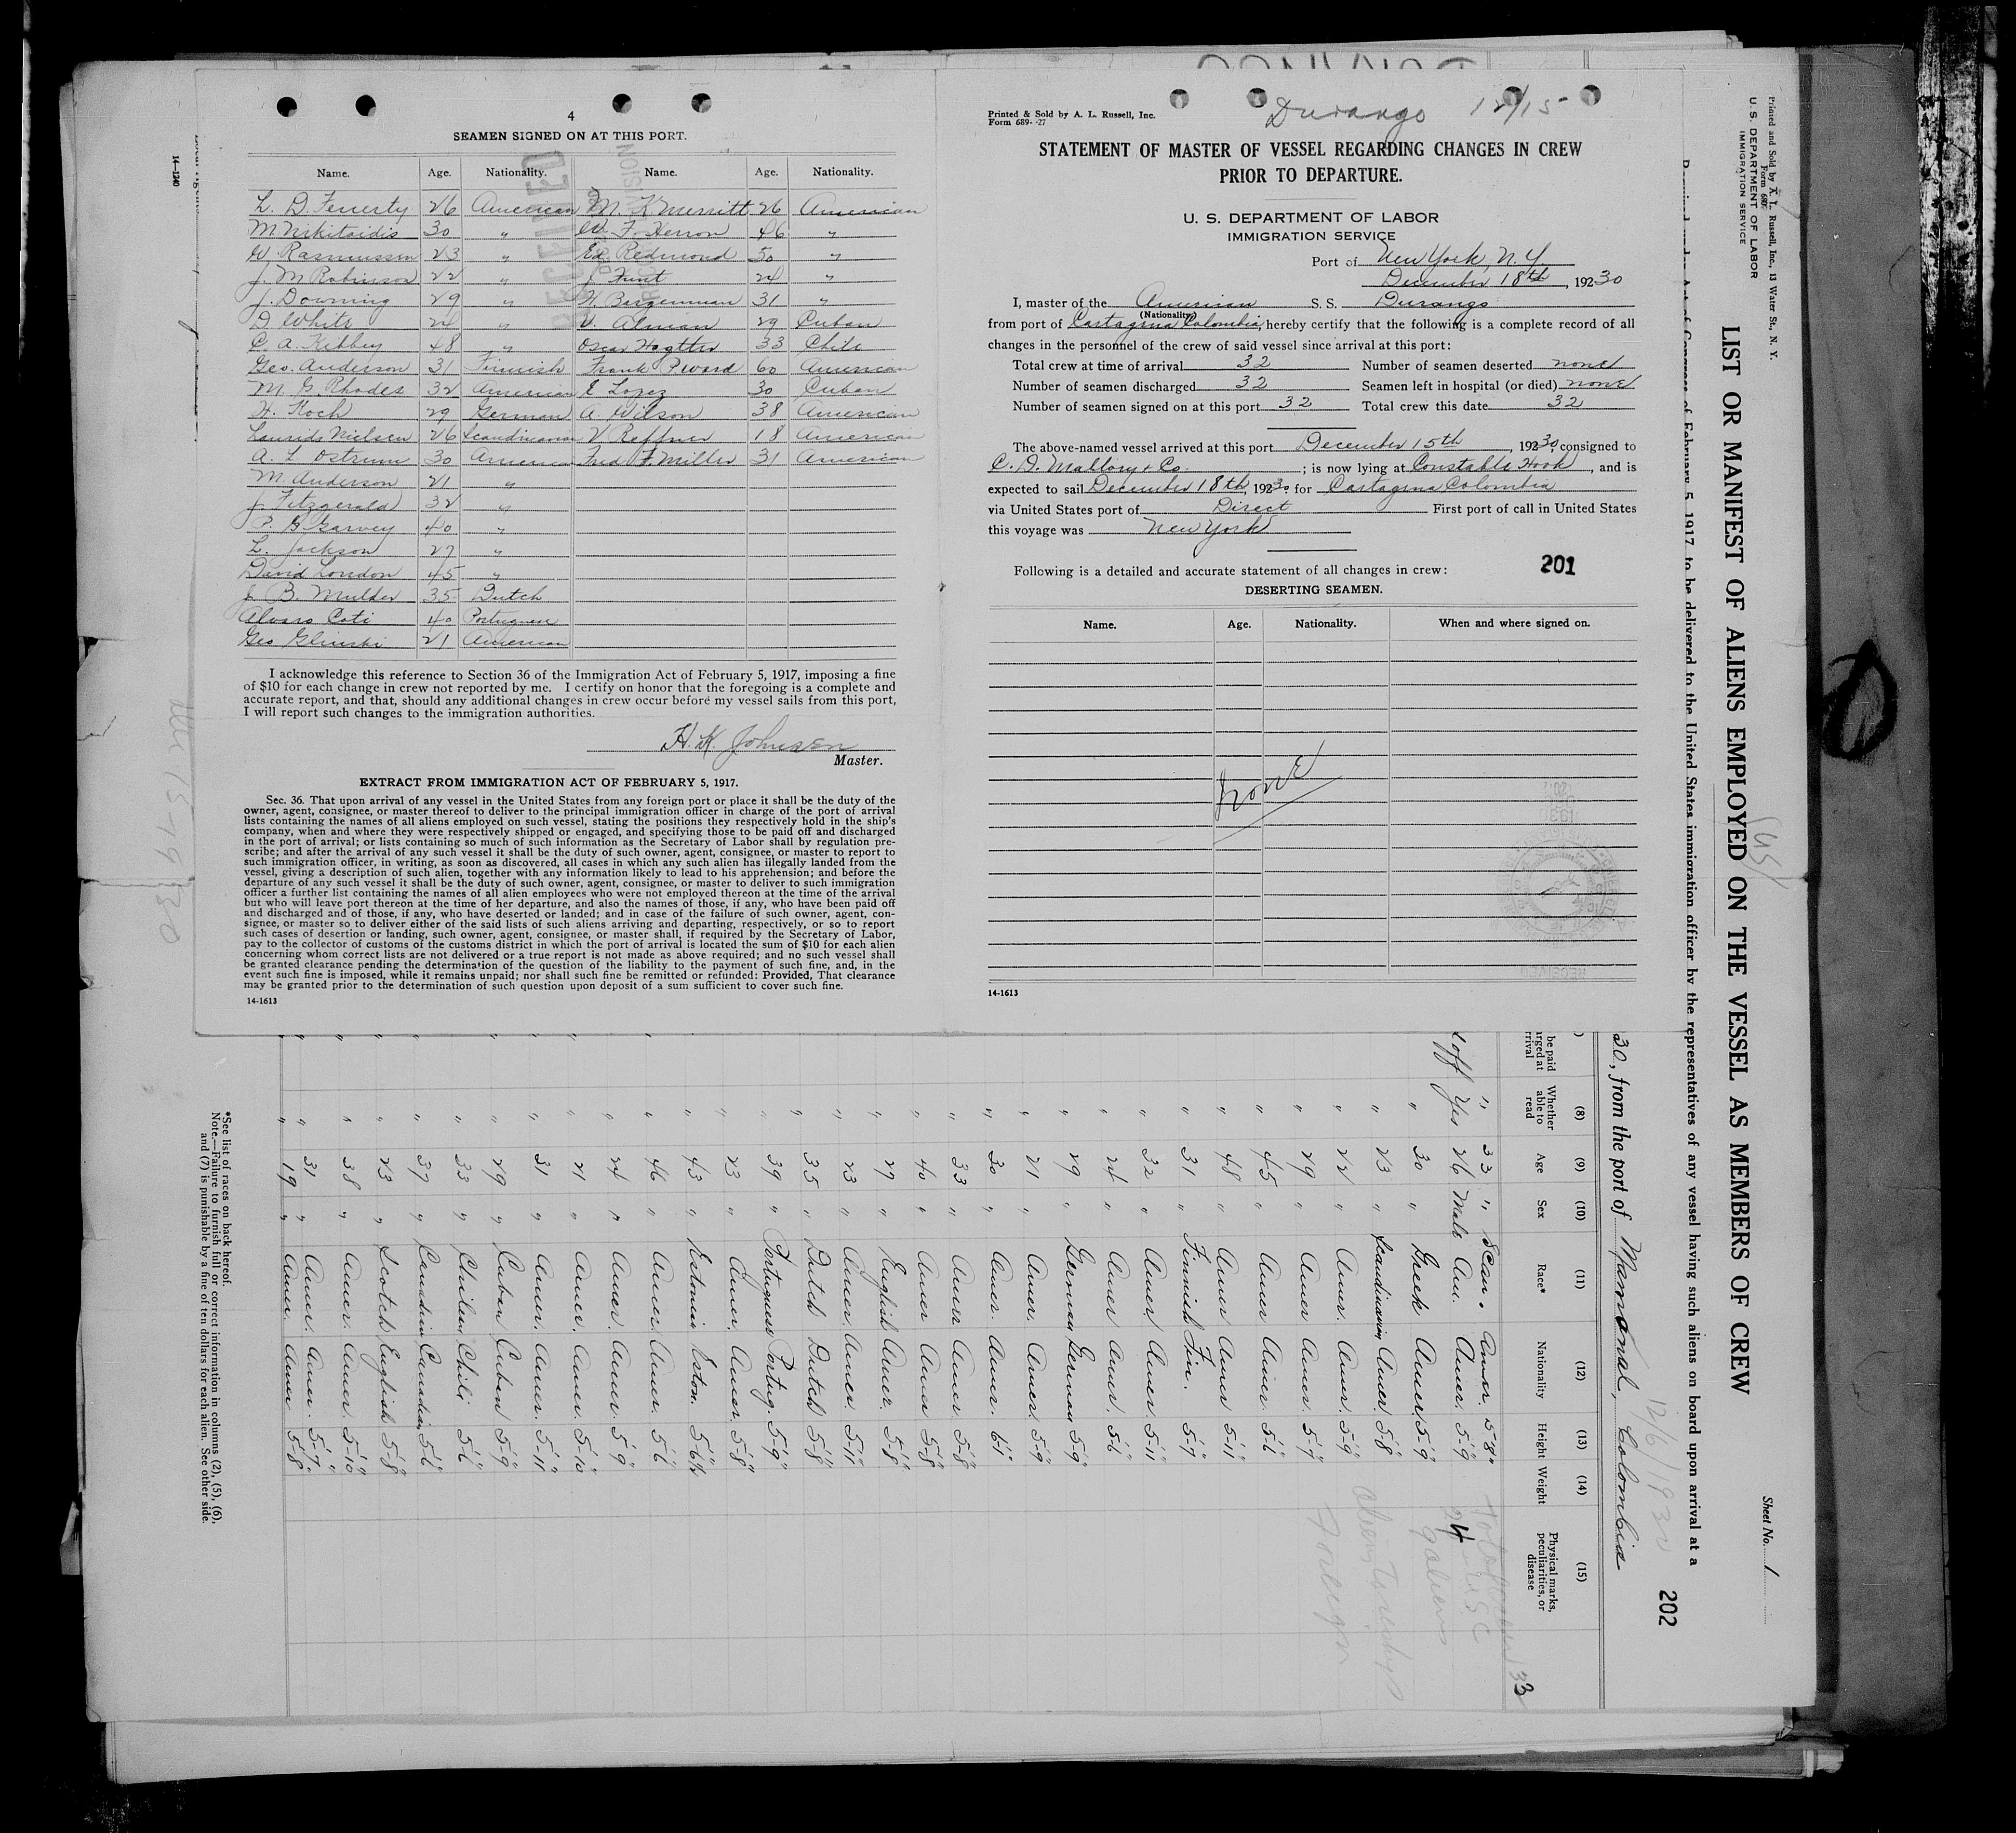 4
SEAMEN SIGNED ON AT THIS PORT.
Name. Age. Nationality. Name. Age. Nationality.
L. D. Fenerty 26 American M. K Merritt 26 American
M Nikitaidis 30 " W. F. Herron 46 "
W. Rasmussen 23 " Ed Redmond 50 "
J. M Robinson 22 " J. Funt 24 "
J. Downing 29 " H. Bergenman 31 "
D. White 24 " V. Alman 29 Cuban
C. A. Kibbey 48 " Oscar 33 Chile
Geo. Anderson 31 Finnish Frank P Ward 60 American
M. G. Rhodes 32 American E Lopez 30 Cuban
H. Koch 29 German A. Wilson 38 American
Laurids Nielsen 26 Scandinavian V. Reffner 18 American
A. L Ostrum 30 American Fred F. Miller 31 American
M. Anderson 21 "
J. Fitzgerald 32 "
P. G Garvey 40 "
L. Jackson 27 "
David London 45 "
J. B. Mulder 35 Dutch
Alvaro Coti 40 Portuguese
Geo Glinski 21 American
I acknowledge this reference to Section 36 of the Immigration Act of February 5, 1917, imposing a fine
of $10 for each change in crew not reported by me. I certify on honor that the foregoing is a complete and
accurate report, and that, should any additional changes in crew occur before my vessel sails from this port,
I will report such changes to the immigration authorities.
H. K. Johnsen
Master.
EXTRACT FROM IMMIGRATION ACT OF FEBRUARY 5, 1917.
Sec. 36. That upon arrival of any vessel in the United States from any foreign port or place it shall be the duty of the
owner, agent, consignee, or master thereof to deliver to the principal immigration officer in charge of the port of arrival
lists containing the names of all aliens employed on such vessel, stating the positions they respectively hold in the ship's
company, when and where they were respectively shipped or engaged, and specifying those to be paid off and discharged
in the port of arrival; or lists containing so much of such information as the Secretary of Labor shall by regulation pre-
scribe; and after the arrival of any such vessel it shall be the duty of such owner, agent, consignee, or master to report to
such immigration officer, in writing, as soon as discovered, all cases in which any such alien has illegally landed from the
vessel, giving a description of such alien, together with any information likely to lead to his apprehension; and before the
departure of any such vessel it shall be the duty of such owner, agent, consignee, or master to deliver to such immigration
officer a further list containing the names of all alien employees who were not employed thereon at the time of the arrival
but who will leave port thereon at the time of her departure, and also the names of those, if any, who have been paid off
and discharged and of those, if any, who have deserted or landed; and in case of the failure of such owner, agent, con-
signee, or master so to deliver either of the said lists of such aliens arriving and departing, respectively, or so to report
such cases of desertion or landing, such owner, agent, consignee, or master shall, if required by the Secretary of Labor,
pay to the collector of customs of the customs district in which the port of arrival is located the sum of $10 for each alien
concerning whom correct lists are not delivered or a true report is not made as above required; and no such vessel shall
be granted clearance pending the determination of the question of the liability to the payment of such fine, and, in the
event such fine is imposed, while it remains unpaid; nor shall such fine be remitted or refunded: Provided, That clearance
may be granted prior to the determination of such question upon deposit of a sum sufficient to cover such fine.
14-1613
Printed & Sold by A. L. Russell, Inc.
Form 689- -27
Durango 12/15
STATEMENT OF MASTER OF VESSEL REGARDING CHANGES IN CREW
PRIOR TO DEPARTURE.
U. S. DEPARTMENT OF LABOR
IMMIGRATION SERVICE
Port of New York, N. Y
December 18th, 192 30
I, master of the American S. S. Durango
(Nationality)
from port of Cartagena Colombia, hereby certify that the following is a complete record of all
changes in the personnel of the crew of said vessel since arrival at this port:
Total crew at time of arrival 32 Number of seamen deserted none
Number of seamen discharged 32 Seamen left in hospital (or died) none
Number of seamen signed on at this port 32 Total crew this date 32
The above-named vessel arrived at this port December 15th, 192 30, consigned to
C. D. Mallory & Co. ; is now lying at Constable Hook, and is
expected to sail December 18th, 192 30 for Cartagena Colombia
via United States port of Direct First port of call in United States
this voyage was New York
201
Following is a detailed and accurate statement of all changes in crew:
DESERTING SEAMEN.
Name. Age. Nationality. When and where signed on.
None
14-1613
14-1240
Printed and Sold by A. L. Russell, Inc., 13 Water St., N. Y.
Form 680.
U. S. DEPARTMENT OF LABOR
IMMIGRATION SERVICE
Sheet No. 1
LIST OR MANIFEST OF ALIENS EMPLOYED ON THE VESSEL AS MEMBERS OF CREW
of February 5, 1917, to be delivered to the United States immigration officer by the representatives of any vessel having such aliens on board upon arrival at a
202
12/6/1930
30, from the port of Mamonal, Colombia
(8) (9) (10) (11) (12) (13) (14) (15)
Whether able to read Age Sex Race* Nationality Height Weight Physical marks, peculiarities, or disease
" 33 " Scan. Amer. 5-8"
off Yes 26 Male Am. Amer. 5-9"
" 30 " Greek Amer. 5-9"
" 23 " Scandinavian Amer. 5-8"
" 22 " Amer. Amer. 5-9"
" 29 " Amer Amer. 5-7"
" 45 " Amer Amer 5-6"
" 48 " Amer Amer 5-11"
" 31 " Finnish Fin. 5-7"
" 32 " Amer. Amer. 5-11"
" 24 " Amer Amer. 5-6"
" 29 " German German 5-9"
" 21 " Amer. Amer. 5-9"
" 30 " Amer. Amer. 6-1"
" 33 " Amer Amer 5-8"
" 40 " Amer Amer 5-8"
" 27 " English Amer. 5-8"
" 23 " Amer. Amer 5-11"
" 35 " Dutch Dutch 5-8"
" 39 " Portuguese Portug. 5-9"
" 23 " Amer. Amer. 5-8"
" 43 " Estonia Eston. 5-6½
" 46 " Amer Amer 5-6"
" 24 " Amer. Amer. 5-9"
" 21 " Amer. Amer 5-10"
" 31 " Amer. Amer. 5-11"
" 29 " Cuban Cuban 5-9"
" 33 " Chilean Chili 5-6"
" 37 " Canadian Canadian 5-6"
" 23 " Scotch English 5-8"
" 38 " Amer. Amer. 5-10"
" 31 " Amer. Amer. 5-7"
" 19 " Amer. Amer 5-8"
33
*See list of races on back hereof.
Note.—Failure to furnish full or correct information in columns (2), (5), (6),
and (7) is punishable by a fine of ten dollars for each alien. See other side.